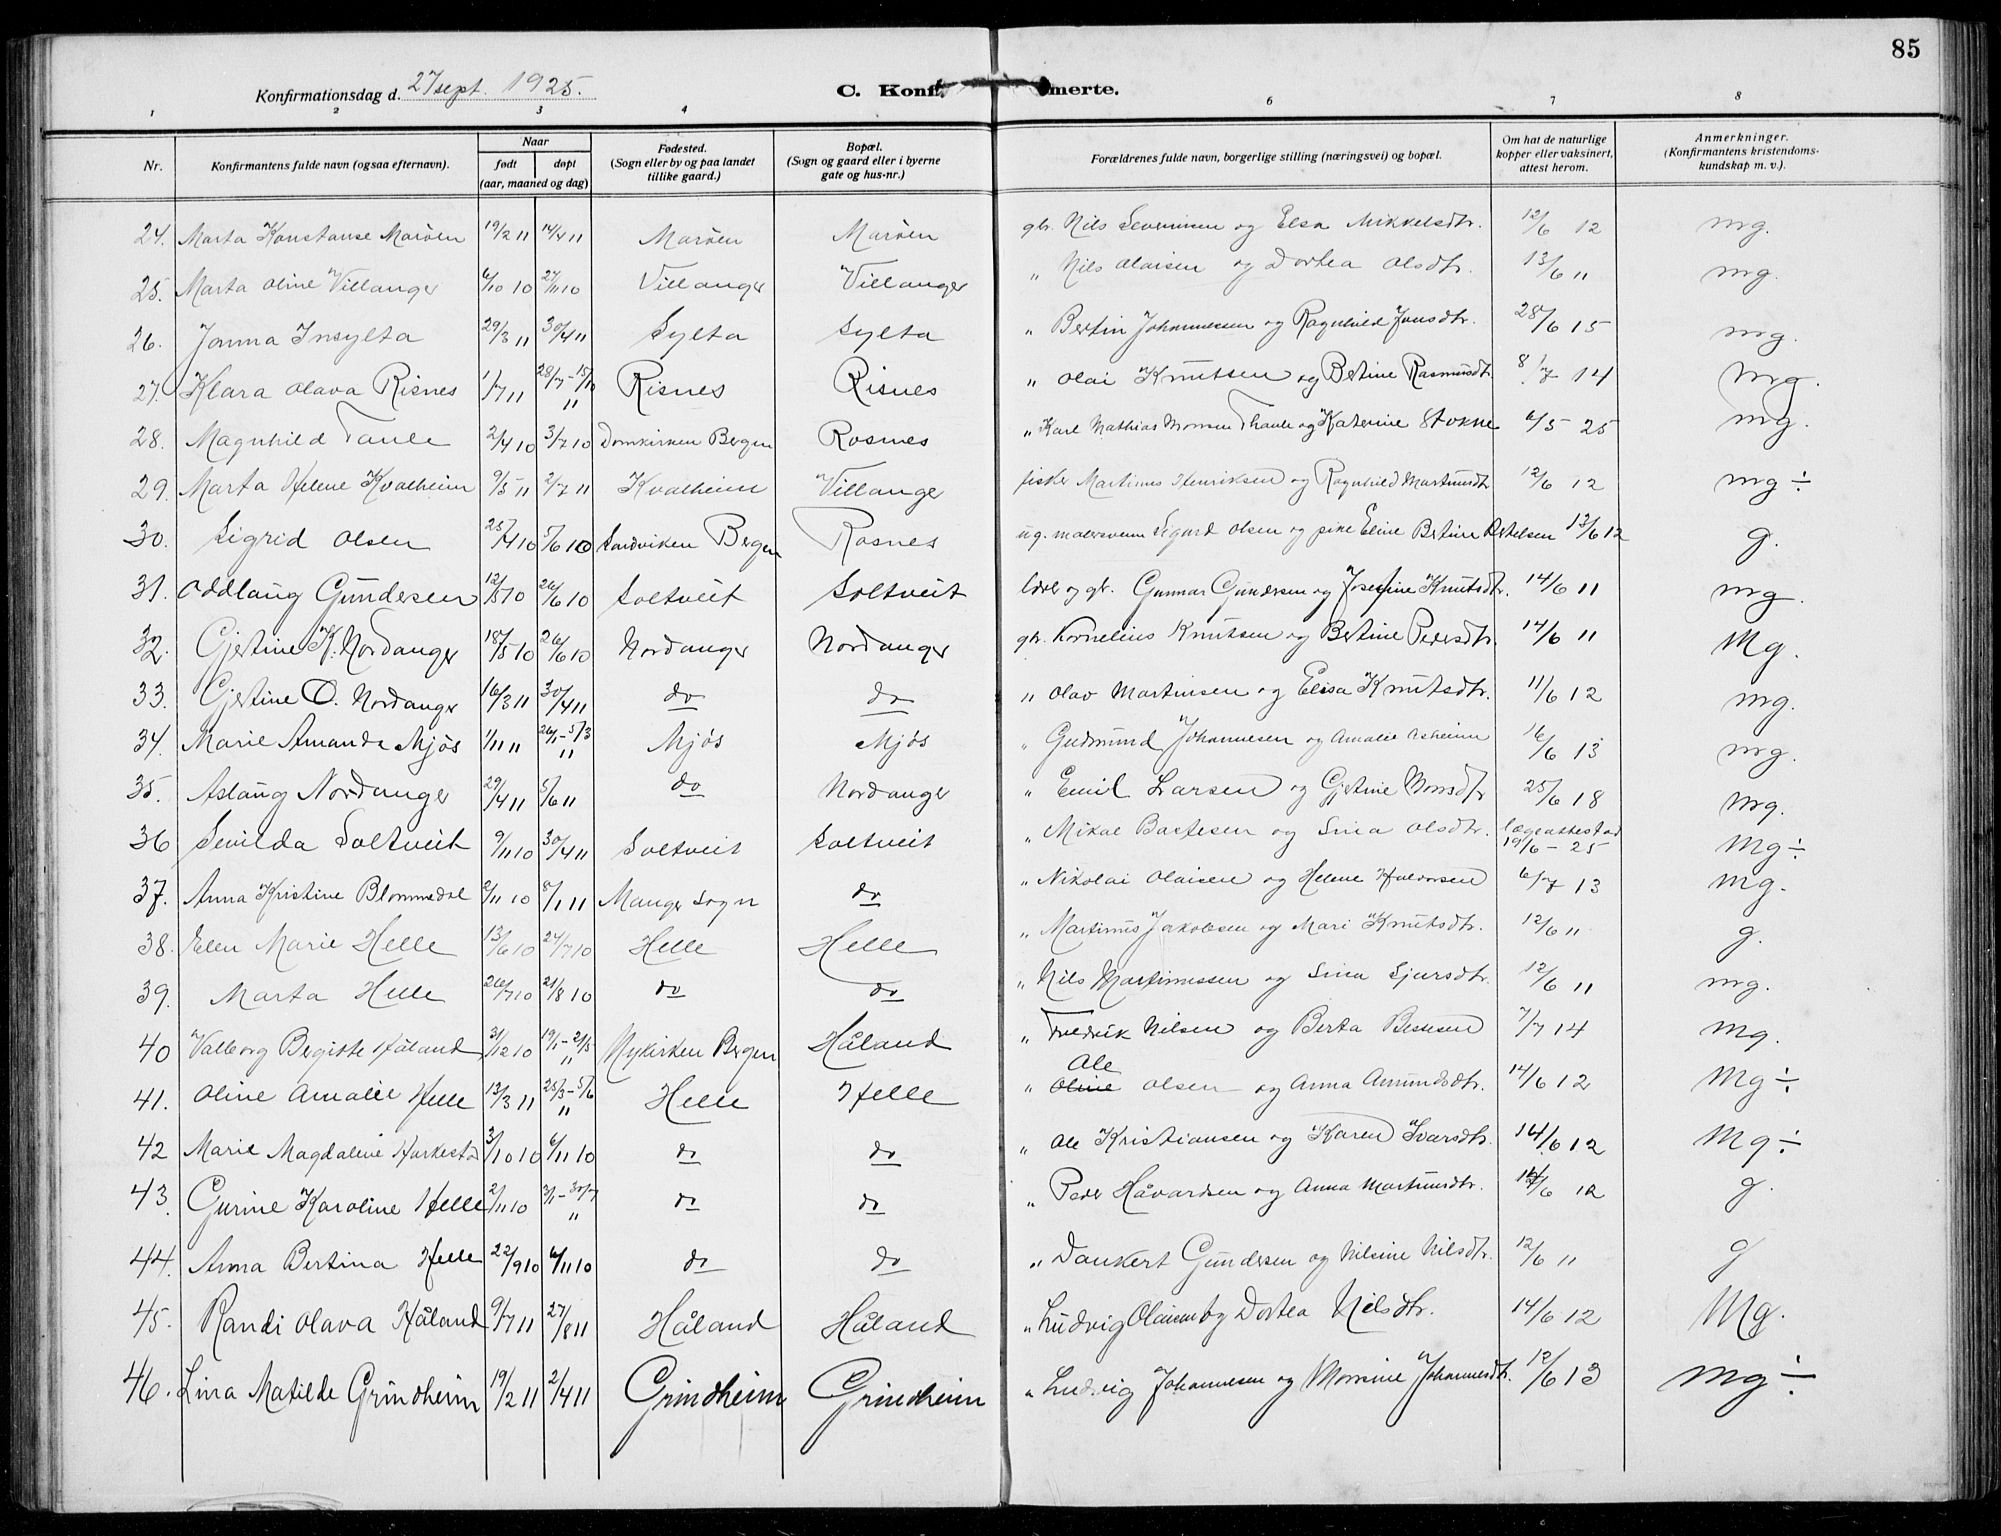 85
Konfirmationsdag d. 27 sept. 1925.
C. Konf merte.
1 2 3 4 6 7 8
Nr. | Konfirmantens fulde navn (ogsaa efternavn). | Naar født døpt (aar, maaned og dag) | Fødested. (Sogn eller by og paa landet tillike gaard.) | Bopæl. (Sogn og gaard eller i byerne gate og hus-nr.) | Forældrenes fulde navn, borgerlige stilling (næringsvei) og bopæl. | Om hat de naturlige kopper eller vaksinert, attest herom. | Anmerkninger. (Konfirmantens kristendoms-kundskap m. v.).
24. Marta Konstanse Marøen 19/2 11 14/4 11 Marøen Marøen gbr. Nils Severinsen og Elsa Mikkelsdtr. 12/6 12 mg.
25. Marta Oline Villanger 6/10 10 27/11 10 Villanger Villanger " Nils Olaisen og Dortea Olsdtr. 13/6 11 mg.
26. Janna Insylta 29/3 11 30/4 11 Sylta Sylta " Bertin Johannessen og Ragnhild Jonsdtr. 28/6 15 mg.
27. Klara Olava Risnes 1/7 11 28/7-15/10 11 Risnes Risnes " Olai Knutsen og Bertine Rasmusdtr. 8/7 14 mg.
28. Magnhild Taule 2/4 10 3/7 10 Domkirken Bergen Rosnes " Karl Mathias Monsen Thaule og Katerine Stokne 6/5 25 mg.
29. Marta Helene Kvalheim 9/5 11 2/7 11 Kvalheim Villanger fisker Martinus Henriksen og Ragnhild Martinusdtr. 12/6 12 mg÷
30. Sigrid Olsen 25/4 10 5/6 10 Sandviken Bergen Rosnes ug. malersvenn Sigurd Olsen og pike Eline Bertine Bertelsen 13/6 12 g.
31. Oddlaug Gundersen 12/5 10 26/6 10 Soltveit Soltveit lærer og gbr. Gunnar Gundersen og Josefine Knutsdtr. 14/6 11 mg.
32. Gjertine K. Nordanger 18/5 10 26/6 10 Nordanger Nordanger gbr. Kornelius Knutsen og Bertine Pedersdtr. 14/6 11 Mg.
33. Gjertine O. Nordanger 16/3 11 30/4 11 do do " Olav Martinsen og Elisa Knutsdtr. 11/6 12 mg.
34. Marie Amanda Mjøs 1/11 11 26/1-5/3 11 Mjøs Mjøs " Gudmund Johannesen og Amalie Askeim 16/6 13 mg.
35. Aslaug Nordanger 29/4 11 5/6 11 do Nordanger " Emil Larsen og Gjertine Monsdtr 25/6 18 mg.
36 Sevilda Soltveit 9/11 10 30/4 11 Soltveit Soltveit " Mikal Bastesen og Sina Olsdtr. lægeattest ad 19/6 - 25 Mg÷
37. Anna Kristine Blommedal 2/11 10 8/1 11 Manger sogn do " Nikolai Olaisen og Helene Halvorsen 6/7 13 Mg.
38. Elen Marie Helle 13/6 10 24/7 10 Helle Helle " Martinus Jakobsen og Mari Knutsdtr. 12/6 11 g.
39. Marta Helle 26/7 10 21/8 10 do do " Nils Martinussen og Sina Sjursdtr 12/6 11 mg.
40 Valborg Bergitte Håland 31/12 10 19/1-2/5 11 Nykirken Bergen Håland " Fredrik Nilsen og Berta Bessesen 7/7 14 Mg.
41. Oline Amalie Helle 13/3 11 25/3-5/6 11 Helle Helle " Oline Ole Olsen og Anna Amundsdtr. 14/6 12 Mg÷
42 Marie Magdalene Harkestad 3/10 10 6/11 10 do do " Ole Kristiansen og Karen Ivarsdtr. 14/6 12 Mg÷
43. Gurine Karoline Helle 2/11 10 3/1-30/7 11 do do " Peder Håvardsen og Anna Martinusdtr. 14/6 12 g.
44. Anna Bertina Helle 22/9 10 6/11 10 do do " Dankert Gundersen og Nilsine Nilsdtr. 12/6 11 g
45. Randi Olava Håland 9/7 11 27/8 11 Håland Håland " Ludvig Olaisen og Dortea Nilsdtr. 14/6 12 Mg.
46. Lina Matilde Grindheim 19/2 11 2/4 11 Grindheim Grindheim " Ludvig Johannesen og Monsine Johannesdtr. 12/6 13 mg÷